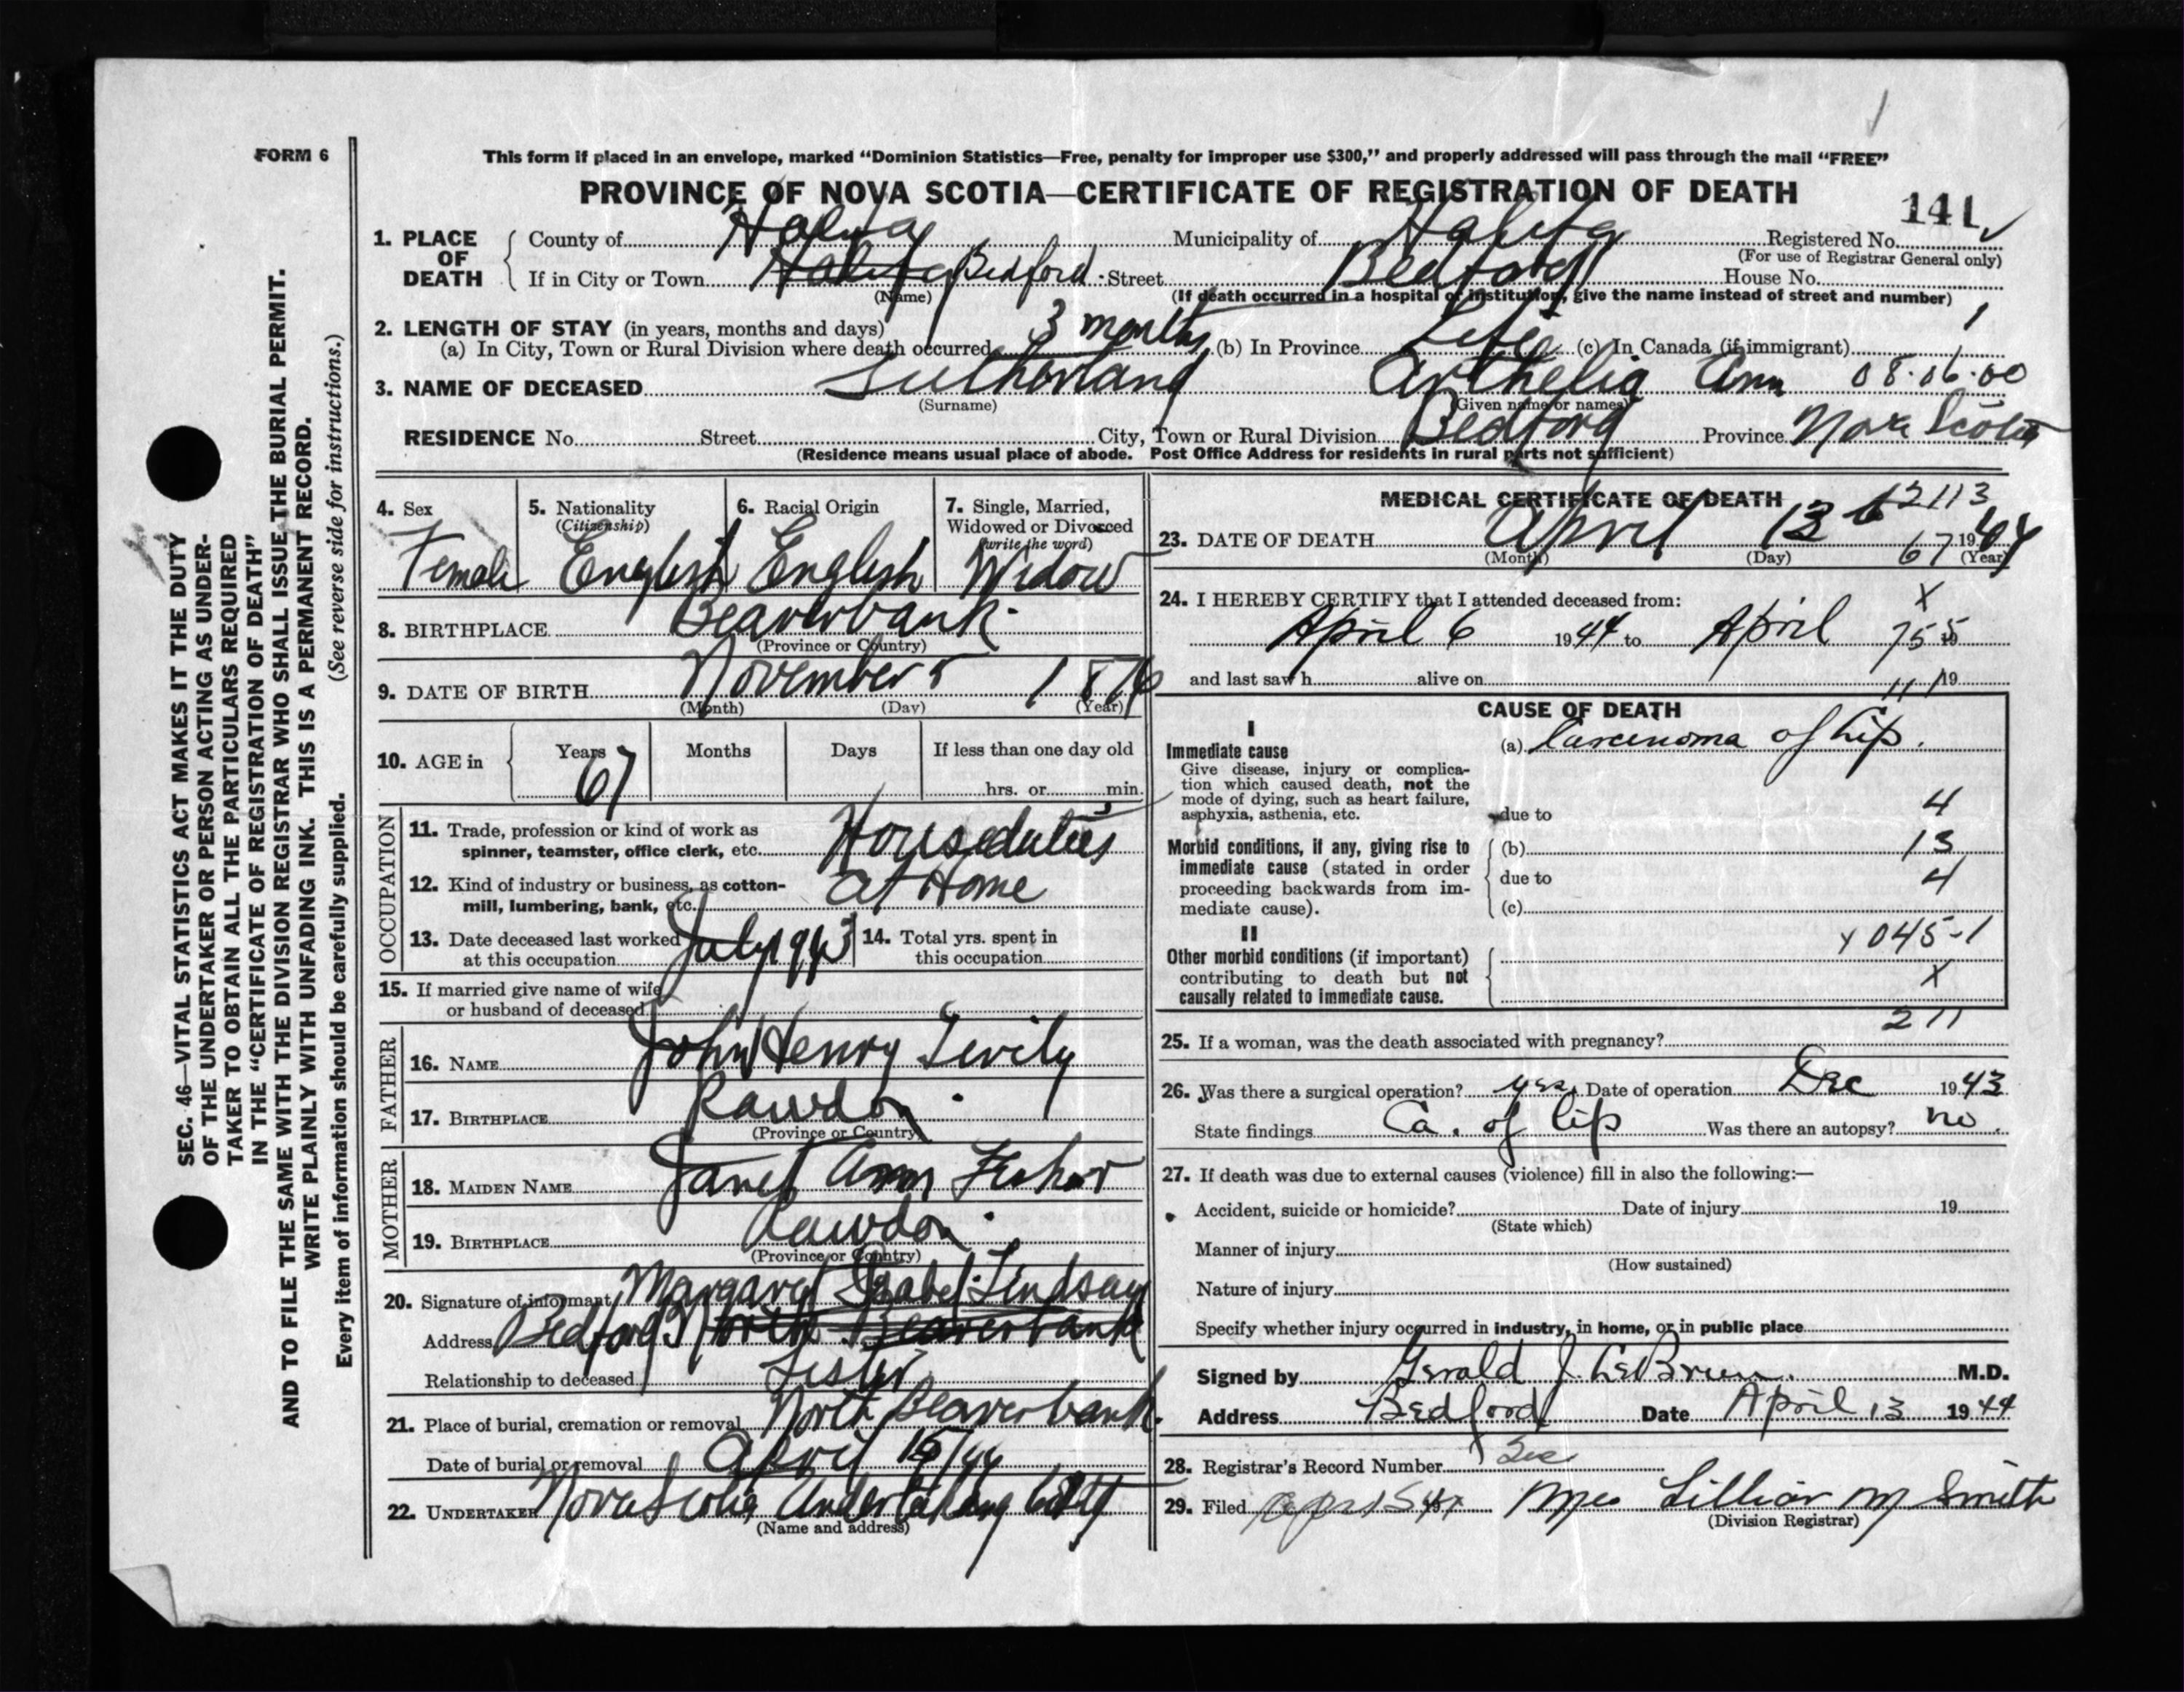 FORM 6
This form if placed in an envelope, marked “Dominion Statistics—Free, penalty for improper use $300,” and properly addressed will pass through the mail “FREE”
PROVINCE OF NOVA SCOTIA—CERTIFICATE OF REGISTRATION OF DEATH
141
1. PLACE OF DEATH
County of Halifax Municipality of Halifax Registered No.
(For use of Registrar General only)
If in City or Town Halifax Bedford Street Bedford House No.
(Name) (If death occurred in a hospital or institution, give the name instead of street and number)
2. LENGTH OF STAY (in years, months and days)
(a) In City, Town or Rural Division where death occurred 3 months (b) In Province Life (c) In Canada (if immigrant)
1
3. NAME OF DECEASED Sutherland Arthelia Ann 08·06·00
(Surname) (Given name or names)
RESIDENCE No. Street City, Town or Rural Division Bedford Province Nova Scotia
(Residence means usual place of abode. Post Office Address for residents in rural parts not sufficient)
4. Sex
Female
5. Nationality
(Citizenship)
English
6. Racial Origin
English
7. Single, Married,
Widowed or Divorced
(write the word)
Widow
8. BIRTHPLACE Beaverbank
(Province or Country)
9. DATE OF BIRTH November 5 1876
(Month) (Day) (Year)
10. AGE in
Years Months Days If less than one day old
67 hrs. or min.
OCCUPATION
11. Trade, profession or kind of work as
spinner, teamster, office clerk, etc. Houseduties
12. Kind of industry or business, as cotton-
mill, lumbering, bank, etc. At Home
13. Date deceased last worked
at this occupation July 1943
14. Total yrs. spent in
this occupation
15. If married give name of wife
or husband of deceased
FATHER
16. NAME John Henry
17. BIRTHPLACE Rawdon
(Province or Country)
MOTHER
18. MAIDEN NAME Janet Ann
19. BIRTHPLACE Rawdon
(Province or Country)
20. Signature of informant Margaret Isabel Lindsay
Address Bedford North Beaverbank
Relationship to deceased Sister
21. Place of burial, cremation or removal North Beaverbank
Date of burial or removal April 15/44
22. UNDERTAKER Nova Scotia Undertaking
(Name and address)
MEDICAL CERTIFICATE OF DEATH
12113
23. DATE OF DEATH April 13 1944
(Month) (Day) (Year)
67
24. I HEREBY CERTIFY that I attended deceased from:
X
April 6 1944 to April 19
755
and last saw h alive on 19
11
CAUSE OF DEATH
I
Immediate cause
Give disease, injury or complica-
tion which caused death, not the
mode of dying, such as heart failure,
asphyxia, asthenia, etc.
(a) Carcinoma of Lip.
due to
4
Morbid conditions, if any, giving rise to
immediate cause (stated in order
proceeding backwards from im-
mediate cause).
(b) 13
due to 4
(c)
II
Other morbid conditions (if important)
contributing to death but not
causally related to immediate cause.
Y 045-1
X
211
25. If a woman, was the death associated with pregnancy?
26. Was there a surgical operation? yes. Date of operation Dec 1943
State findings Ca. of lip Was there an autopsy? no.
27. If death was due to external causes (violence) fill in also the following:—
Accident, suicide or homicide? Date of injury 19
(State which)
Manner of injury
(How sustained)
Nature of injury
Specify whether injury occurred in industry, in home, or in public place
Signed by Gerald J. LeBrun. M.D.
Address Bedford Date April 13 1944
28. Registrar's Record Number
29. Filed 15 44 Mrs Lillian M Smith
(Division Registrar)
SEC. 46—VITAL STATISTICS ACT MAKES IT THE DUTY
OF THE UNDERTAKER OR PERSON ACTING AS UNDER-
TAKER TO OBTAIN ALL THE PARTICULARS REQUIRED
IN THE “CERTIFICATE OF REGISTRATION OF DEATH”
AND TO FILE THE SAME WITH THE DIVISION REGISTRAR WHO SHALL ISSUE THE BURIAL PERMIT.
WRITE PLAINLY WITH UNFADING INK. THIS IS A PERMANENT RECORD.
Every item of information should be carefully supplied. (See reverse side for instructions.)